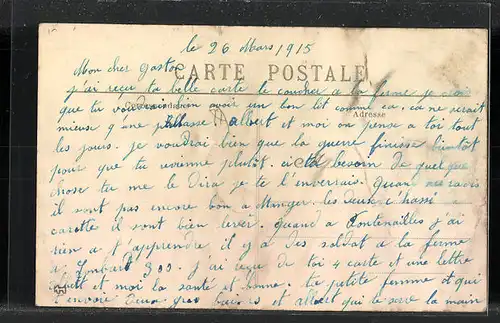 le 26 Mars 1915
Mon cher Gaston
CARTE POSTALE
j'ai reçu ta belle carte le coucher a la ferme je crois
que tu voudrais bien avoir un bon lit comme ca, ca ne serait
Adresse
mieuse q'une albert et moi on pense a toi tout
les jours. je voudrai bien que la guerre finisse bientôt
pour que tu revienne plutôt. si tu besoin de quelque
chose tu me le Dira je te l'enverrais. quan
il sont pas encore bon a Manger. les
carette il sont bien lever. quand a Fontenailles j'ai
rien a t'apprendre il y a des soldat a la ferme
a Lombard 300. j'ai reçu de toi 4 carte et une lettre
et moi la santé et bonne. ta petite femme et qui
t'envoie Deux gros baisers et albert qui te serre la main